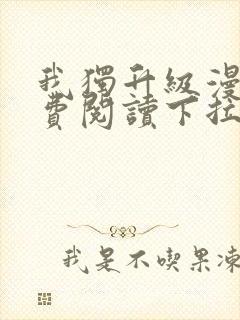 我獨升級漫
費閱讀下拉
我是不喫果凍